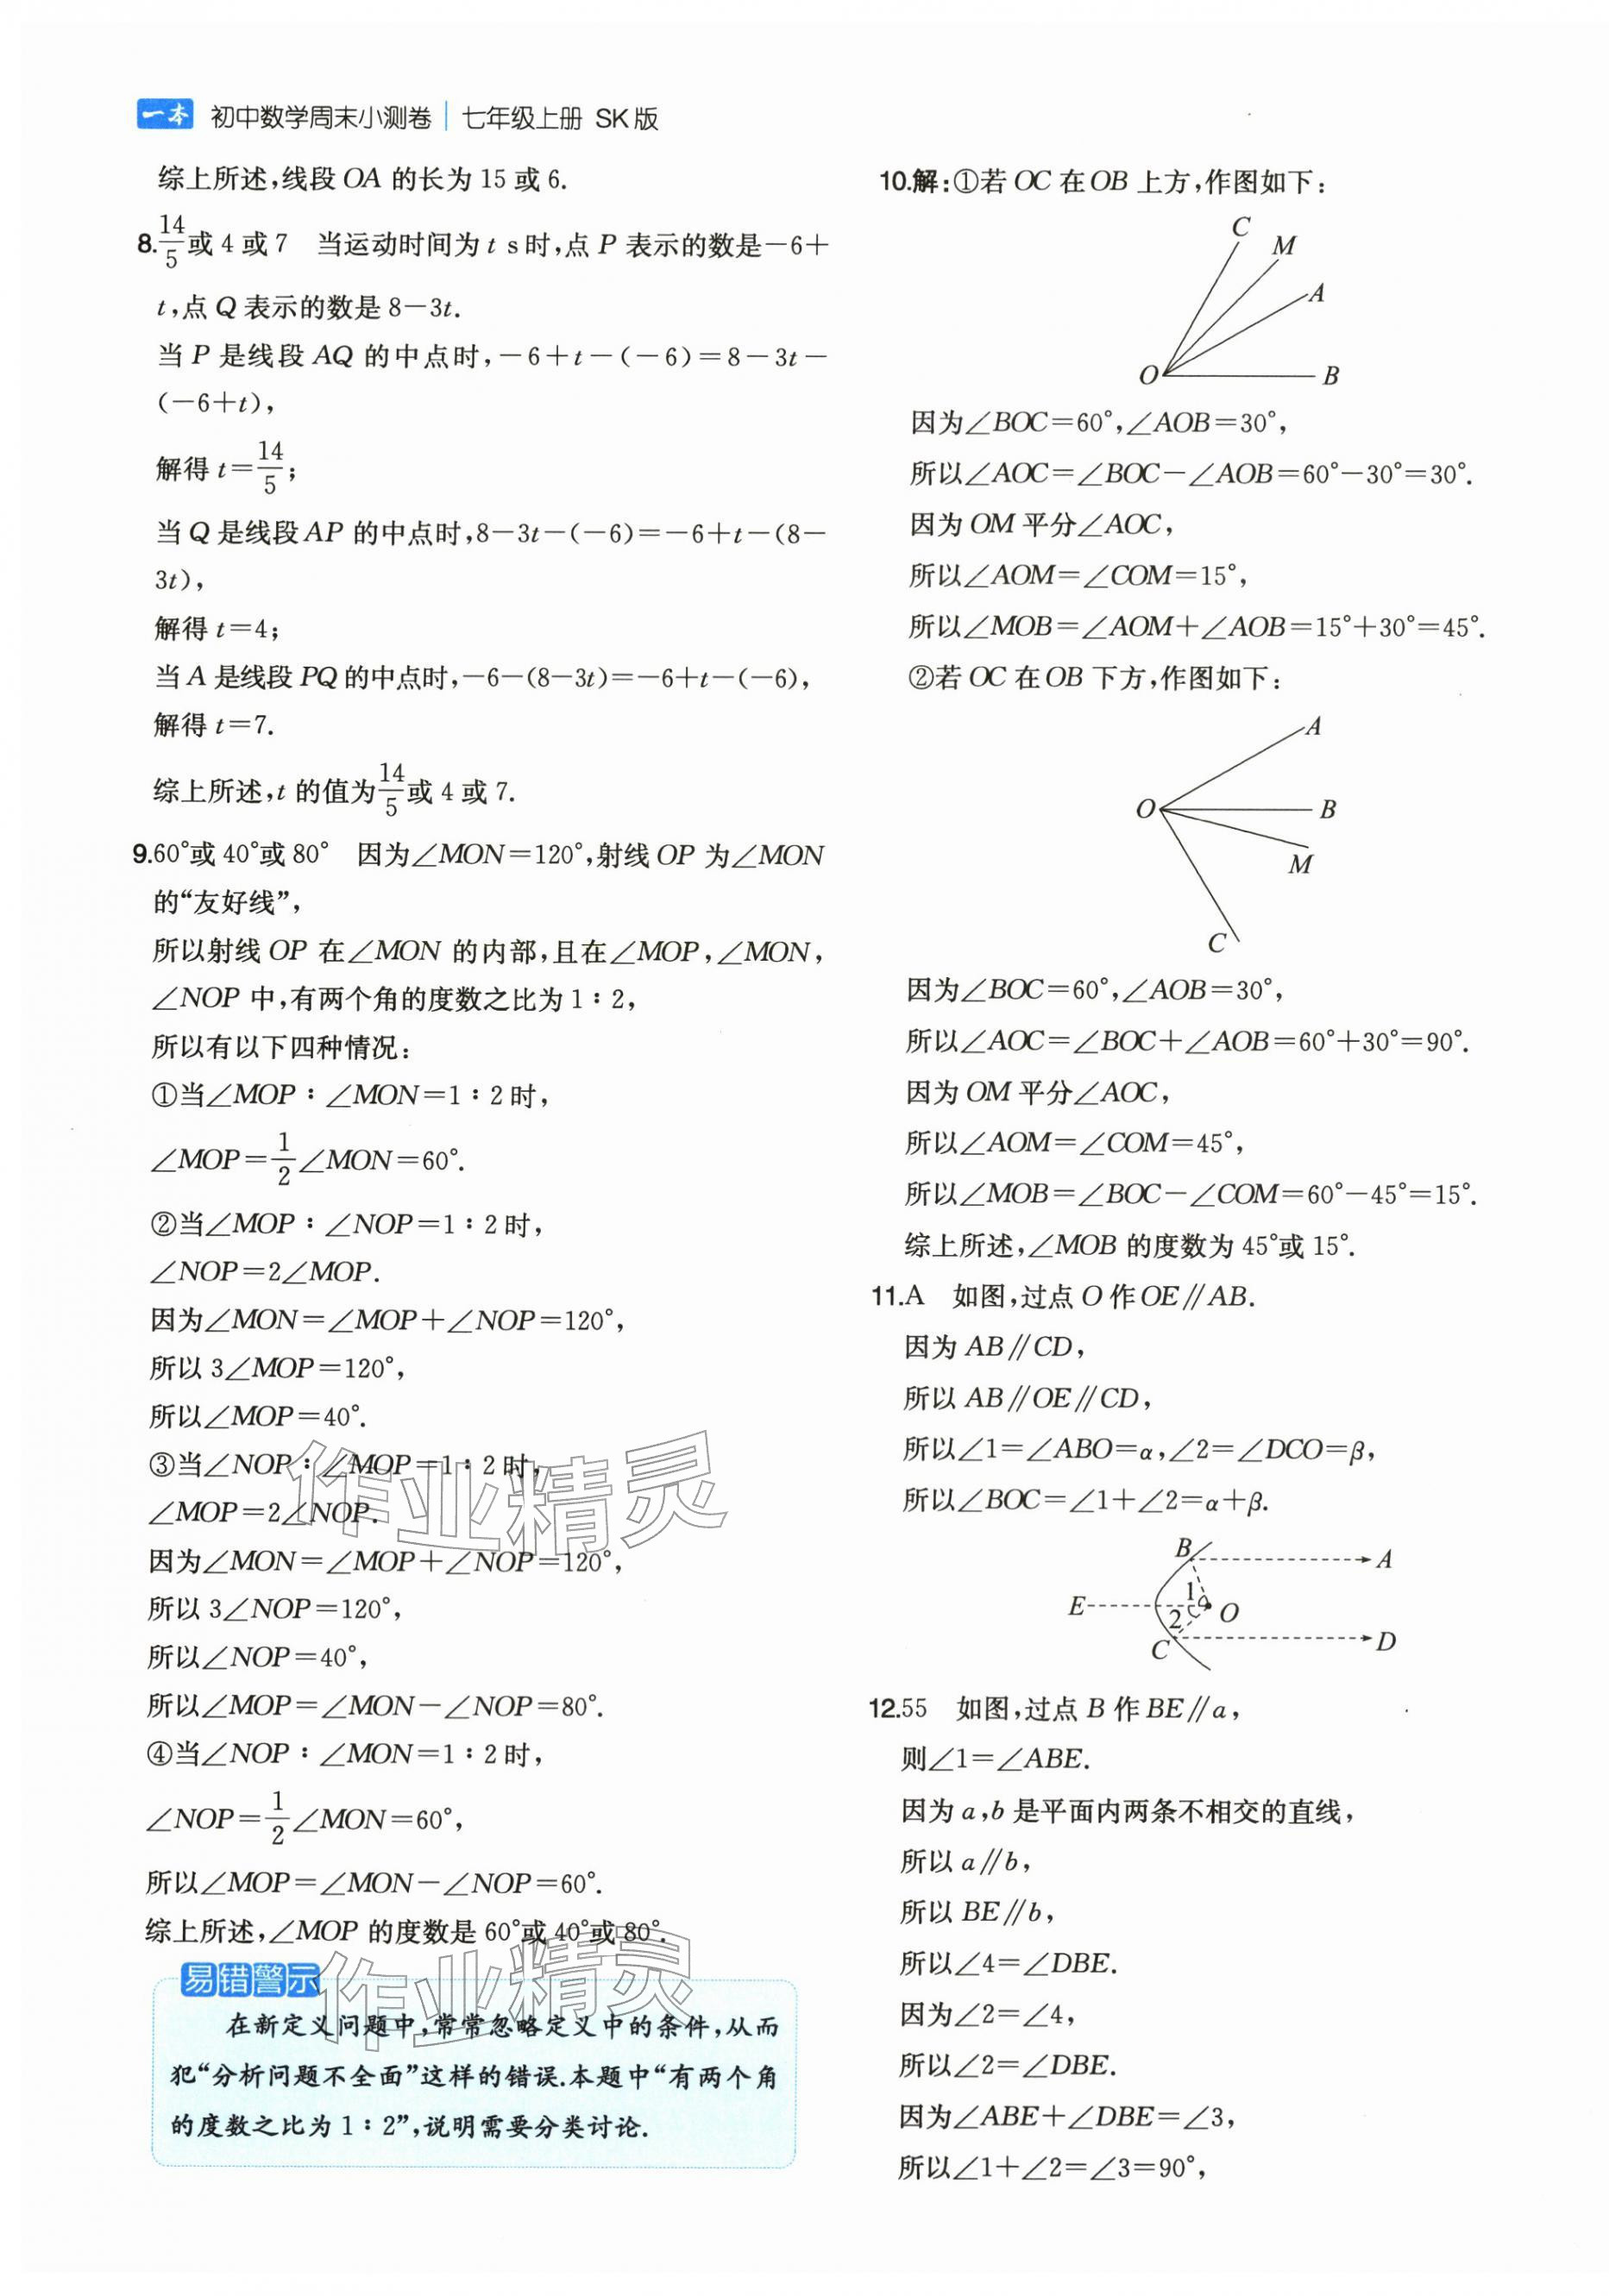 一本 初中数学周末小测卷 七年级上册 SK版
综上所述,线段OA的长为15或6.
8.14/5或4或7 当运动时间为t s时,点P表示的数是-6+
t,点Q表示的数是8-3t.
当P是线段AQ的中点时,-6+t-(-6)=8-3t-
(-6+t),
解得t=14/5;
当Q是线段AP的中点时,8-3t-(-6)=-6+t-(8-
3t),
解得t=4;
当A是线段PQ的中点时,-6-(8-3t)=-6+t-(-6),
解得t=7.
综上所述,t的值为14/5或4或7.
9.60°或40°或80° 因为∠MON=120°,射线OP为∠MON
的“友好线”,
所以射线OP在∠MON的内部,且在∠MOP,∠MON,
∠NOP中,有两个角的度数之比为1∶2,
所以有以下四种情况:
①当∠MOP∶∠MON=1∶2时,
∠MOP=1/2∠MON=60°.
②当∠MOP∶∠NOP=1∶2时,
∠NOP=2∠MOP.
因为∠MON=∠MOP+∠NOP=120°,
所以3∠MOP=120°,
所以∠MOP=40°.
③当∠NOP∶∠MOP=1∶2时,
∠MOP=2∠NOP.
因为∠MON=∠MOP+∠NOP=120°,
所以3∠NOP=120°,
所以∠NOP=40°,
所以∠MOP=∠MON-∠NOP=80°.
④当∠NOP∶∠MON=1∶2时,
∠NOP=1/2∠MON=60°,
所以∠MOP=∠MON-∠NOP=60°.
综上所述,∠MOP的度数是60°或40°或80°.
作业精灵
作业精灵
易错警示
在新定义问题中,常常忽略定义中的条件,从而
犯“分析问题不全面”这样的错误.本题中“有两个角
的度数之比为1∶2”,说明需要分类讨论.
10.解:①若OC在OB上方,作图如下:
C
M
A
O
B
因为∠BOC=60°,∠AOB=30°,
所以∠AOC=∠BOC-∠AOB=60°-30°=30°.
因为OM平分∠AOC,
所以∠AOM=∠COM=15°,
所以∠MOB=∠AOM+∠AOB=15°+30°=45°.
②若OC在OB下方,作图如下:
A
O
B
M
C
因为∠BOC=60°,∠AOB=30°,
所以∠AOC=∠BOC+∠AOB=60°+30°=90°.
因为OM平分∠AOC,
所以∠AOM=∠COM=45°,
所以∠MOB=∠BOC-∠COM=60°-45°=15°.
综上所述,∠MOB的度数为45°或15°.
11.A 如图,过点O作OE∥AB.
因为AB∥CD,
所以AB∥OE∥CD,
所以∠1=∠ABO=α,∠2=∠DCO=β,
所以∠BOC=∠1+∠2=α+β.
B
A
1
E
2
O
C
D
12.55 如图,过点B作BE∥a,
则∠1=∠ABE.
因为a,b是平面内两条不相交的直线,
所以a∥b,
所以BE∥b,
所以∠4=∠DBE.
因为∠2=∠4,
所以∠2=∠DBE.
因为∠ABE+∠DBE=∠3,
所以∠1+∠2=∠3=90°,